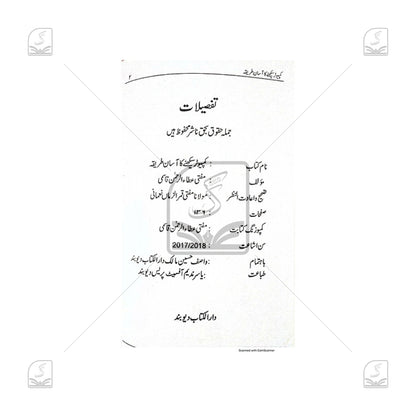 کمپیوٹر سیکھنے کا آسان طریقہ ۲
تفصیلات
جملہ حقوق بحق ناشر محفوظ ہیں
نام کتاب : کمپیوٹر سیکھنے کا آسان طریقہ
مؤلف : مفتی عطاء الرحمٰن قاسمی
تصحیح واعادۃ النظر : مولانا مفتی قمر الزماں نعمانی
صفحات : ۱۳۶
کمپوزنگ کتابت : مفتی عطاء الرحمٰن قاسمی
سن اشاعت : 2017/2018
باہتمام : واصف حسین مالک دارالکتاب دیوبند
طباعت : یاسر ندیم آفسیٹ پریس دیوبند
دارالکتاب دیوبند
Scanned with CamScanner